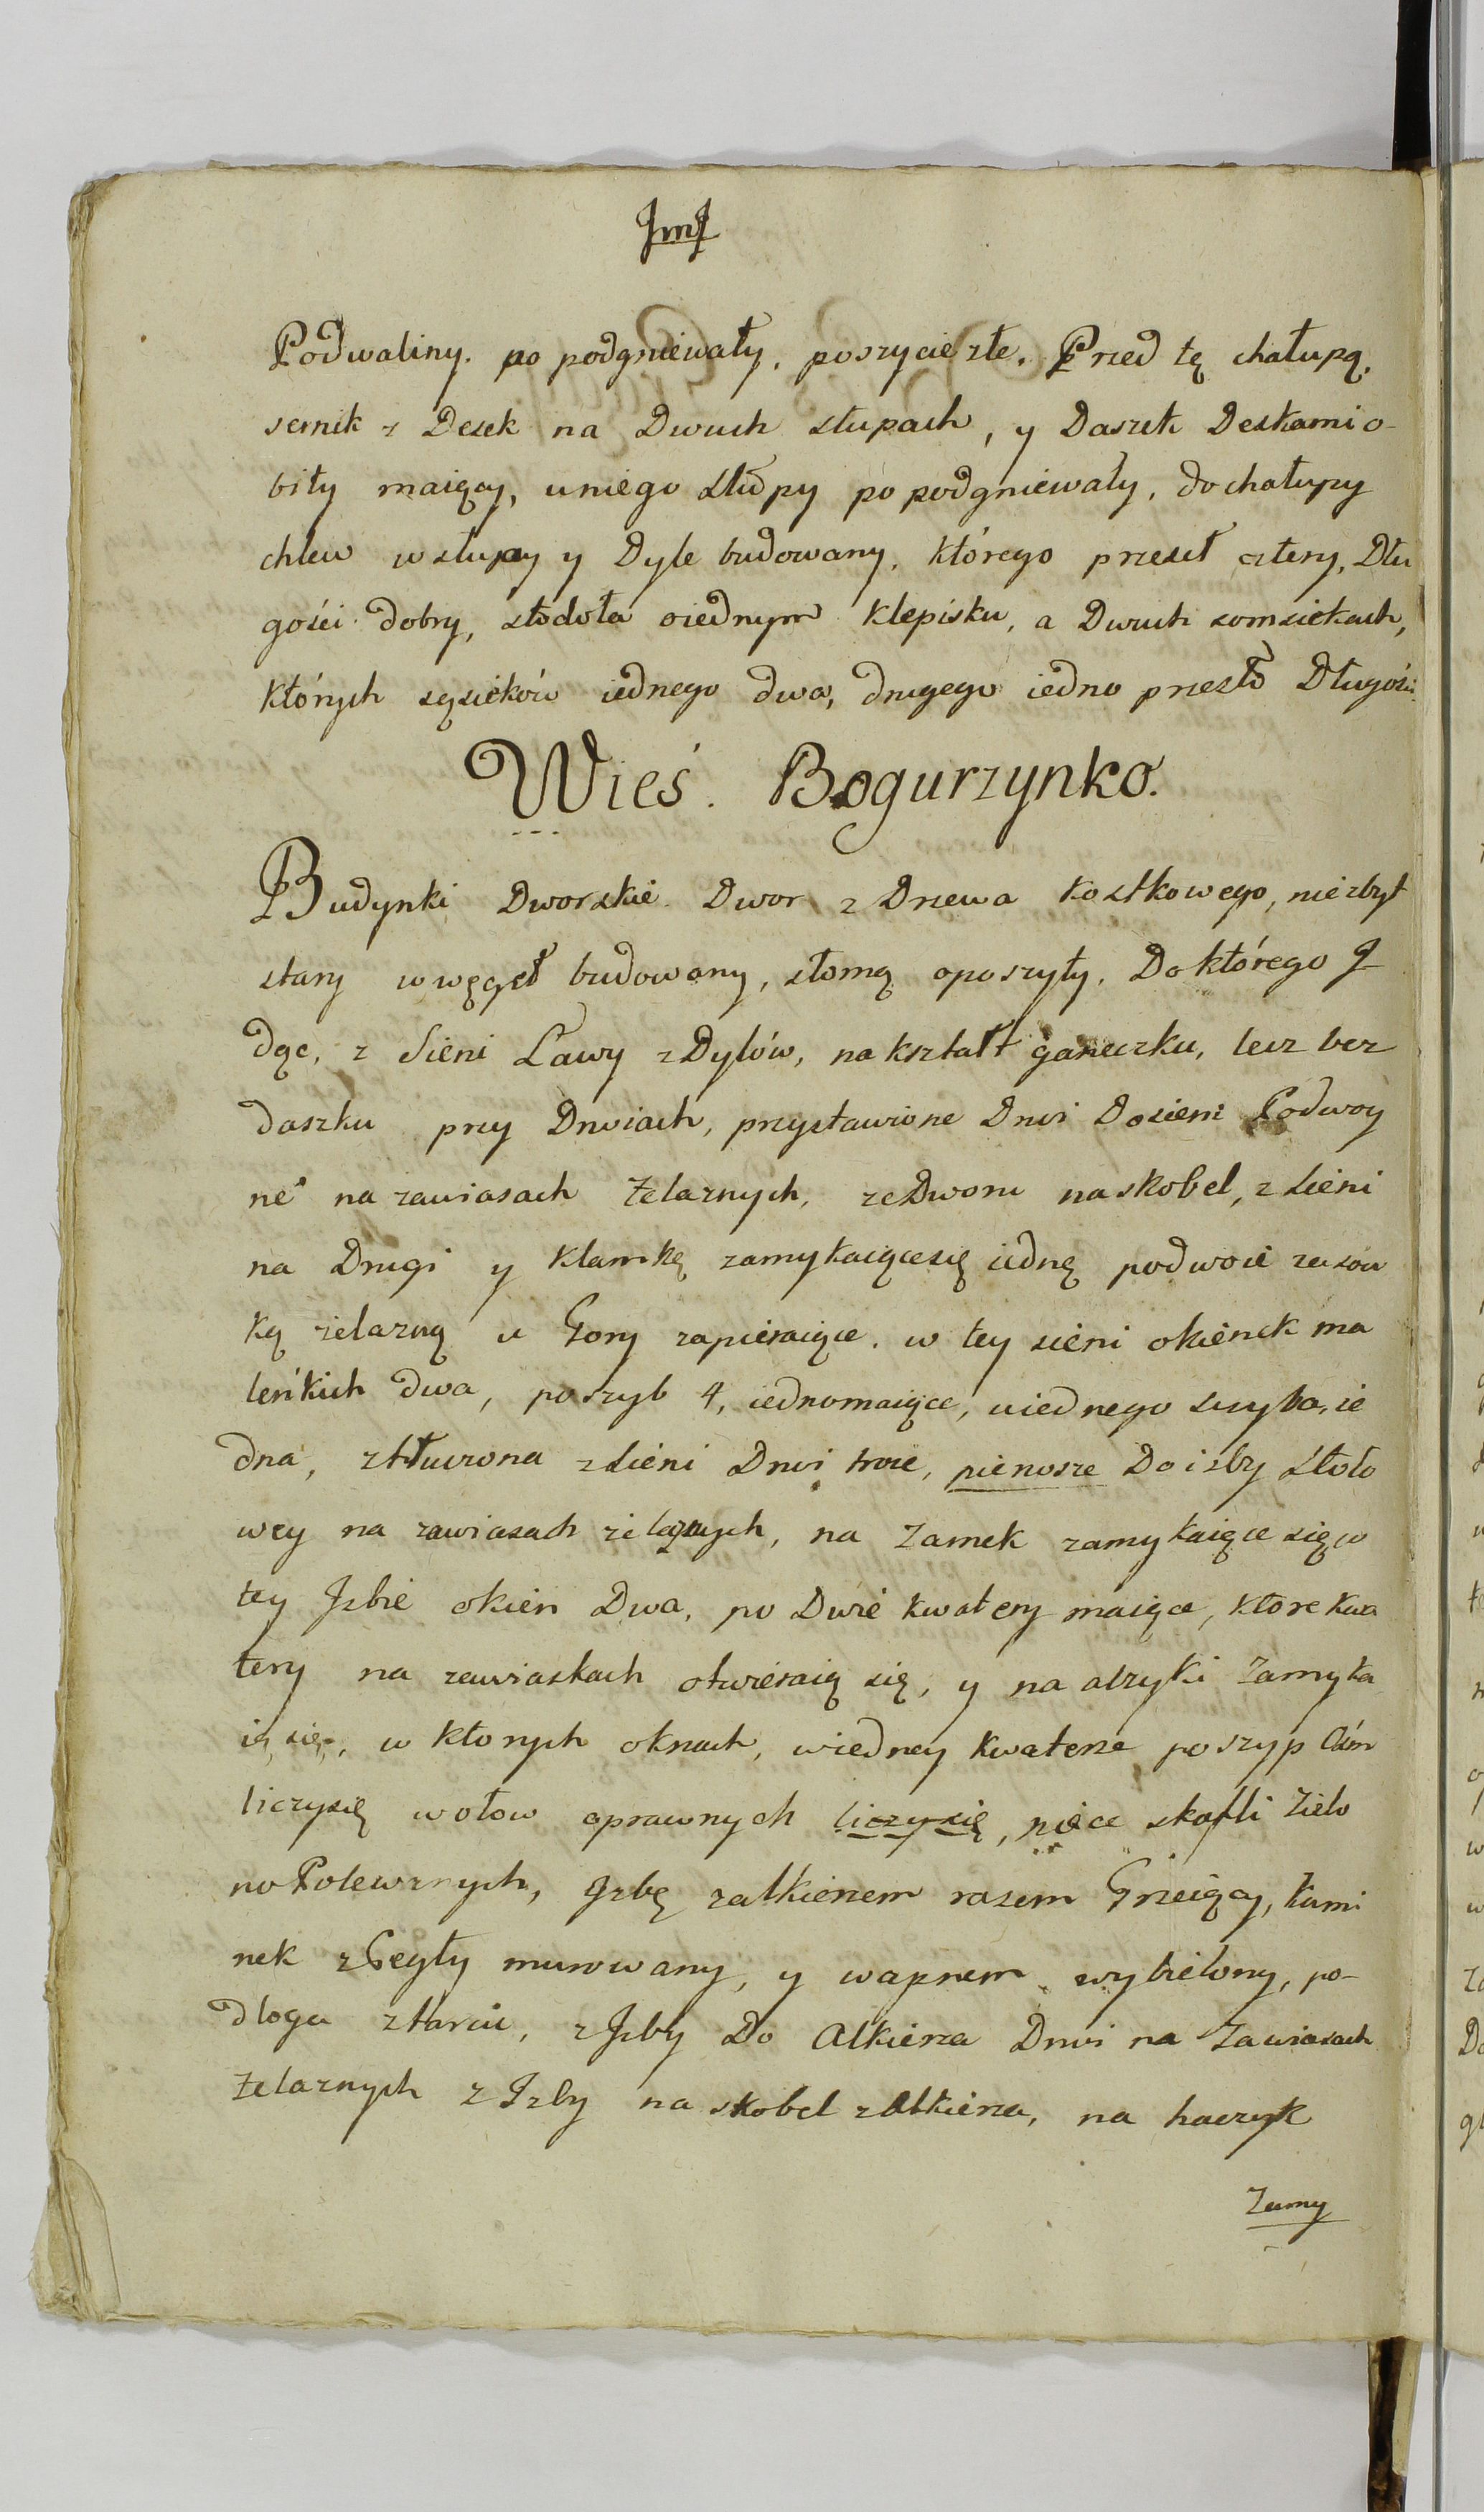 JmJ
Podwaliny. po podgniewały. poszycie złe. Przed tę chałupą,
sernik z Desek na Dwuch słupach, y Daszek Deskami o-
biły maiący, uniego Słupy po podgniewały, do chałupy
chlew w słupy y Dyle budowany, którego przeseł cztery, Dłu
gości dobry, stodoła oiednym klepisku, a Dwuch somsiekach,
których sąsieków iednego dwa, drugego iedno przesło Długości.
Wieś. Bogurzynko.
Budynki Dworskie Dwor z Drzewa kostkowego, niezbyt
stary w węgeł budowany, słomą oposzyty, Do którego J
dąc, z Sieni Ławy z Dylów, na kształt ganeczku, lecz bez
daszku przy Drwiach, przystawione Drwi Dosieni Podwoy
ne na zawiasach żelaznych, ze Dworu na skobel, z Sieni
na Drugi y klamkę zamykaiącesię iednę podwoie zasow
ką żelazną u Gory zapieraiące. w tey sieni okienek ma
leńkich dwa, poszyb 4, iednomaiące, uiednego szyba, ie
dna, ztłuczona z Sieni Drwi troie, pierwsze Do izby Stoło
wey na zawiasach żelaznych, na Zamek zamykaiące się w
tey Jzbie okien Dwa, po Dwie kwatery maiące, które kwa
tery na zawiaskach otwieraią się, y na abzyki Zamyka
ią się, w ktorych oknach, wiedney kwaterze poszyp Ośm
liczysię wołow oprawnych liczysię, piece skafli Zielo
no Polewznych, Jzbę zalkierzem razem Grzeiący, kami
nek z Cegły murowany, y wapnem wybielony, po-
dłoga ztarcic, z Jzby Do Alkierza Drwi na Zawiasach
żelaznych z Jzby na skobel z Alkierza, na haczyk
Zamy